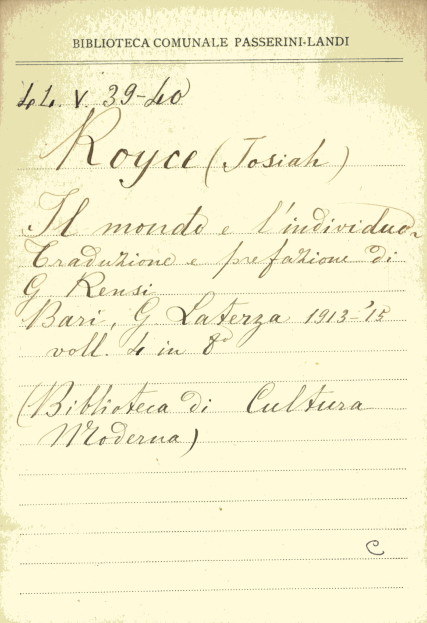 BIBLIOTECA COMUNALE PASSERINI-LANDI
44. V. 39-40
Royce (Josiah)
Il mondo e l'individuo-
Traduzione e prefazione di
G Rensi
Bari, G Laterza 1913-'15
voll. 4 in 8º
(Biblioteca di Cultura
Moderna)
C